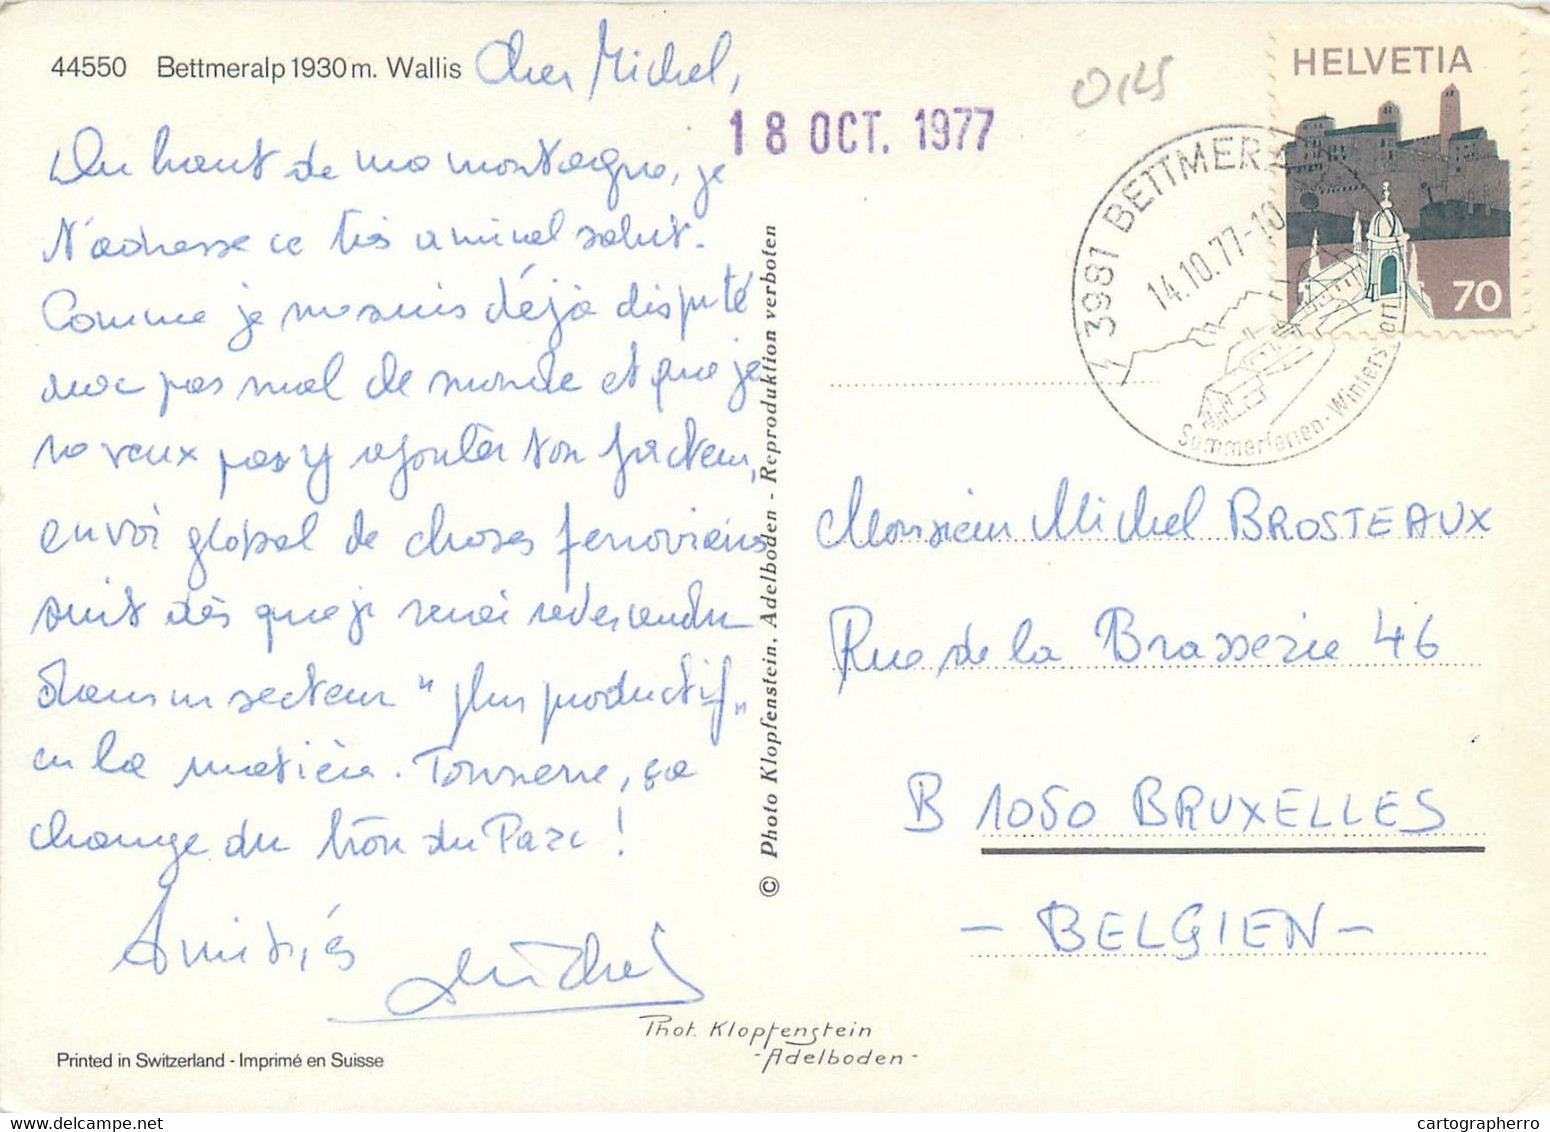 44550 Bettmeralp 1930 m. Wallis
Cher Michel,
Du haut de ma montagne, je
t'adresse ce très amical salut.
Comme je me suis déjà disputé
avec pas mal de monde et que je
ne veux pas y ajouter ton facteur,
envoi global de choses ferroviaires
suit dès que je serai redescendu
dans un secteur "plus productif"
en la matière. Tonnerre, ça
change du tron du Parc !
Amitiés
Michel
Printed in Switzerland - Imprimé en Suisse
© Photo Klopfenstein, Adelboden - Reproduktion verboten
Phot. Klopfenstein
- Adelboden -
18 OCT. 1977
0,25
HELVETIA
70
3981 BETTMERA
14.10.77-10
Sommerferien - Winters ort
Monsieur Michel BROSTEAUX
Rue de la Brasserie 46
B 1050 BRUXELLES
- BELGIEN -
cartographerro